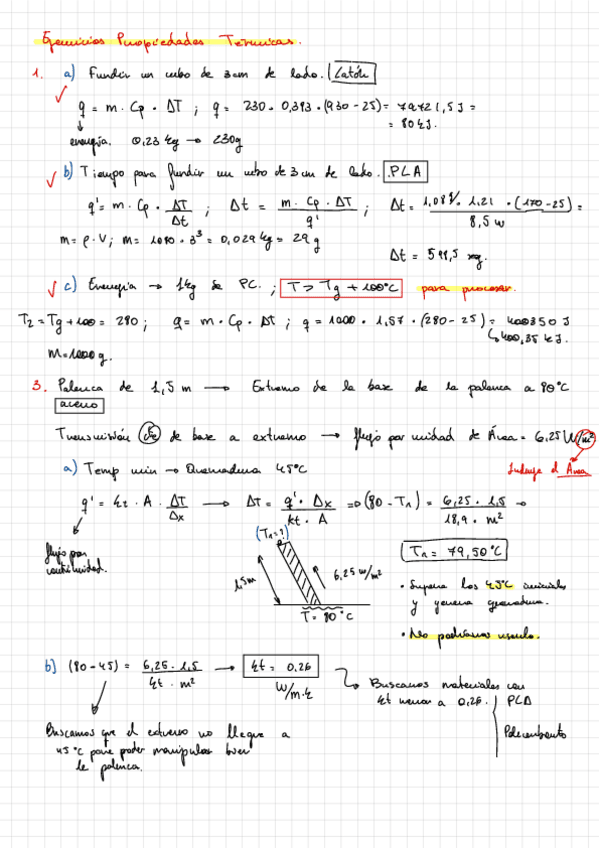 Ejercicios Propiedades Térmicas.
1. a) Fundir un cubo de 3cm de lado. Latón
q = m · Cp · ΔT ; q = 230 · 0,393 · (930 - 25) = 79721,5 J =
= 80 kJ.
energía. 0,23 kg → 230g
b) Tiempo para fundir un cubo de 3 cm de lado. PLA
q' = m · Cp · ΔT/Δt ; Δt = m · Cp · ΔT / q' ; Δt = · 1,21 · (170 - 25) / 8,5 w =
m = ρ · V ; m = 1080 · 3³ = 0,029 kg = 29 g
Δt = 598,5 seg.
c) Energía → 1kg de PC. ; T > Tg + 100°C para procesar.
T₂ = Tg + 100 = 280 ; q = m · Cp · ΔT ; q = 1000 · 1,57 · (280 - 25) = 400350 J
↳ 400,35 kJ.
m = 1000 g.
3. Palanca de 1,5 m → Extremo de la base de la palanca a 80°C
acero
Transmisión de base a extremo → flujo por unidad de Área = 6,25 W/m²
Incluye el Área
a) Temp min → Quemadura 45°C
q' = kt · A · ΔT/Δx → ΔT = q' · Δx / kt · A ⇒ (80 - T₁) = 6,25 · 1,5 / 18,9 · m² →
flujo por
cantidad.
(T₁ = ?)
1,5m
6,25 w/m²
T = 80°C
T₁ = 79,50°C
• Supera los 45°C iniciales
y genera quemadura.
• No podríamos usarlo.
b) (80 - 45) = 6,25 · 1,5 / kt · m² → kt = 0,26
W/m·k
Buscamos materiales con
kt menor a 0,26. PLA
Buscamos que el extremo no llegue a
45°C para poder manipular bien
la palanca.